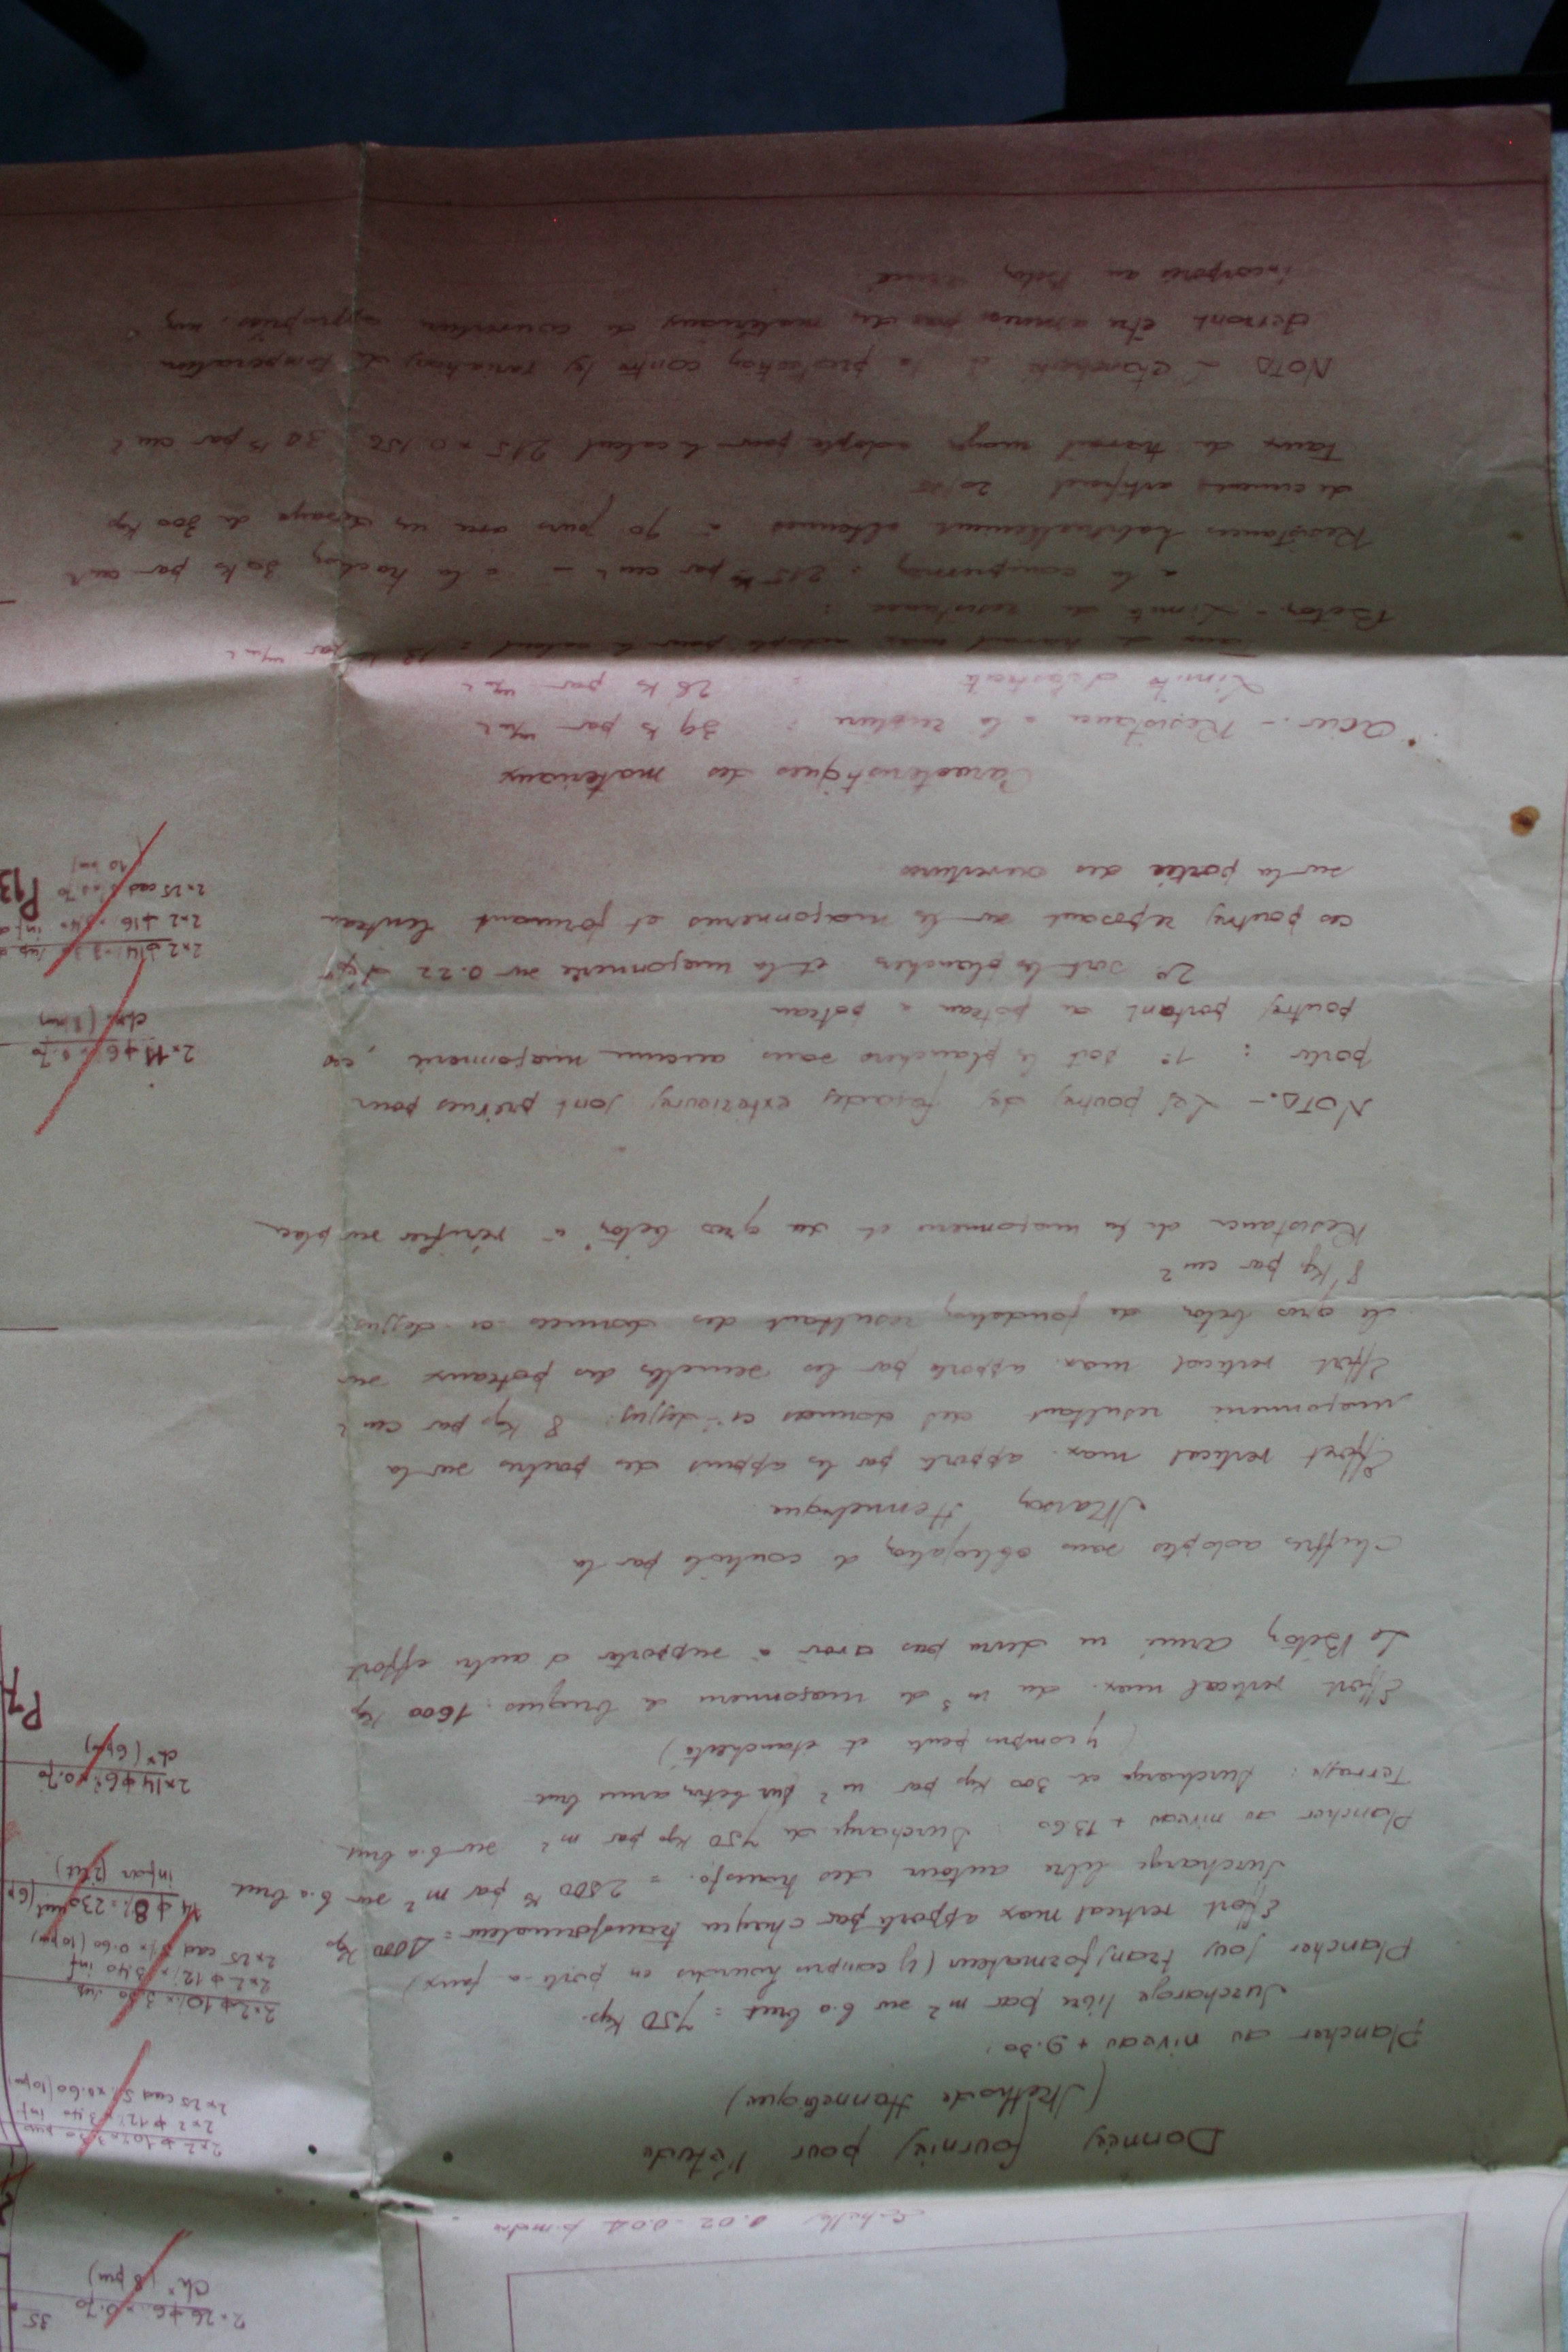 Echelle 0.02 - 0.01 p. metre
Données fournies pour l'étude
(Methode Hennebique)
Plancher au niveau + 9.30.
Surcharge libre par m² sur b.a brut = 750 Kgs.
Plancher sous transformateur (y compris hourdis en porte-a faux)
Effort vertical max apporté par chaque transformateur = Kgs
Surcharge libre autour des transfo. = 2800 Ks par m² sur b.a brut
Plancher au niveau + 13.60 : Surcharge de 750 Kgs par m² sur b.a brut
Terrasse : Surcharge de 300 Kgs par m² sur beton armé brut
(y compris pente et étancheité)
Effort vertical max. du m³ de maçonnerie de briques : 1600 Kgs
Le Béton armé ne devra pas avoir à supporter d'autre effort
Chiffres adoptés sans obligation de contrôle par la
Maison Hennebique
Effort vertical max. apporté par les appuis des poutres sur la
maçonnerie resultant des données ci-dessus : 8 Kgs par cm²
Effort vertical max. apporté par les semelles des poteaux sur
le gros beton de fondation resultant des données ci-dessus
8 Kgs par cm²
Resistance de la maçonnerie et du gros béton à vérifier sur place
NOTA. - Les poutres des façades exterieures sont prévues pour
porter : 1° soit le plancher sans aucune maçonnerie, ces
poutres portant de poteau à poteau
2° soit les planchers et la maçonnerie sur 0.22 d'ép
ces poutres reposant sur la maçonnerie et formant linteau
sur la portée des ouvertures
Caracteristiques des materiaux
Acier. - Resistance à la rupture : 39 ks par m/m²
Limite d'élasticité : 26 ks par m/m²
Taux de travail max adopté pour le calcul : par m/m²
Béton - Limite de resistance :
à la compression : 215 Ks par cm² - à la traction 20 ks par cm²
Resistances habituellement obtenues à 90 jours avec un dosage de 300 Kgs
de ciment artificiel
Taux de travail adopté pour le calcul 215 × par cm²
NOTA L'étancheité et la protection contre les variations de température
devront être assurées par des matériaux de couverture appropriés, non
incorporés au Béton armé
2×26 ϕ 6 × 0.70 35
ch× (8 pm)
2×2 ϕ 10 × 3.30 sup
2×2 ϕ 12 × 3.40 inf
2×25 cad 5 × 0.60 (10 pm)
2×2 ϕ 10 × 3.30 sup
2×2 ϕ 12 × 3.40 inf
2×25 cad 5 × 0.60 (10 pm)
14 ϕ 8 × 2.30
infer (2 lit)
2×14 ϕ 6 × 0.70
ch× (6 pm)
P7
2×11 ϕ 6 × 0.70
ch× (8 pm)
2×2 ϕ 14 × 3.30 sup
2×2 ϕ 16 × 3.40 inf
2×25 cad 5 × 0.70
(10 pm)
P13